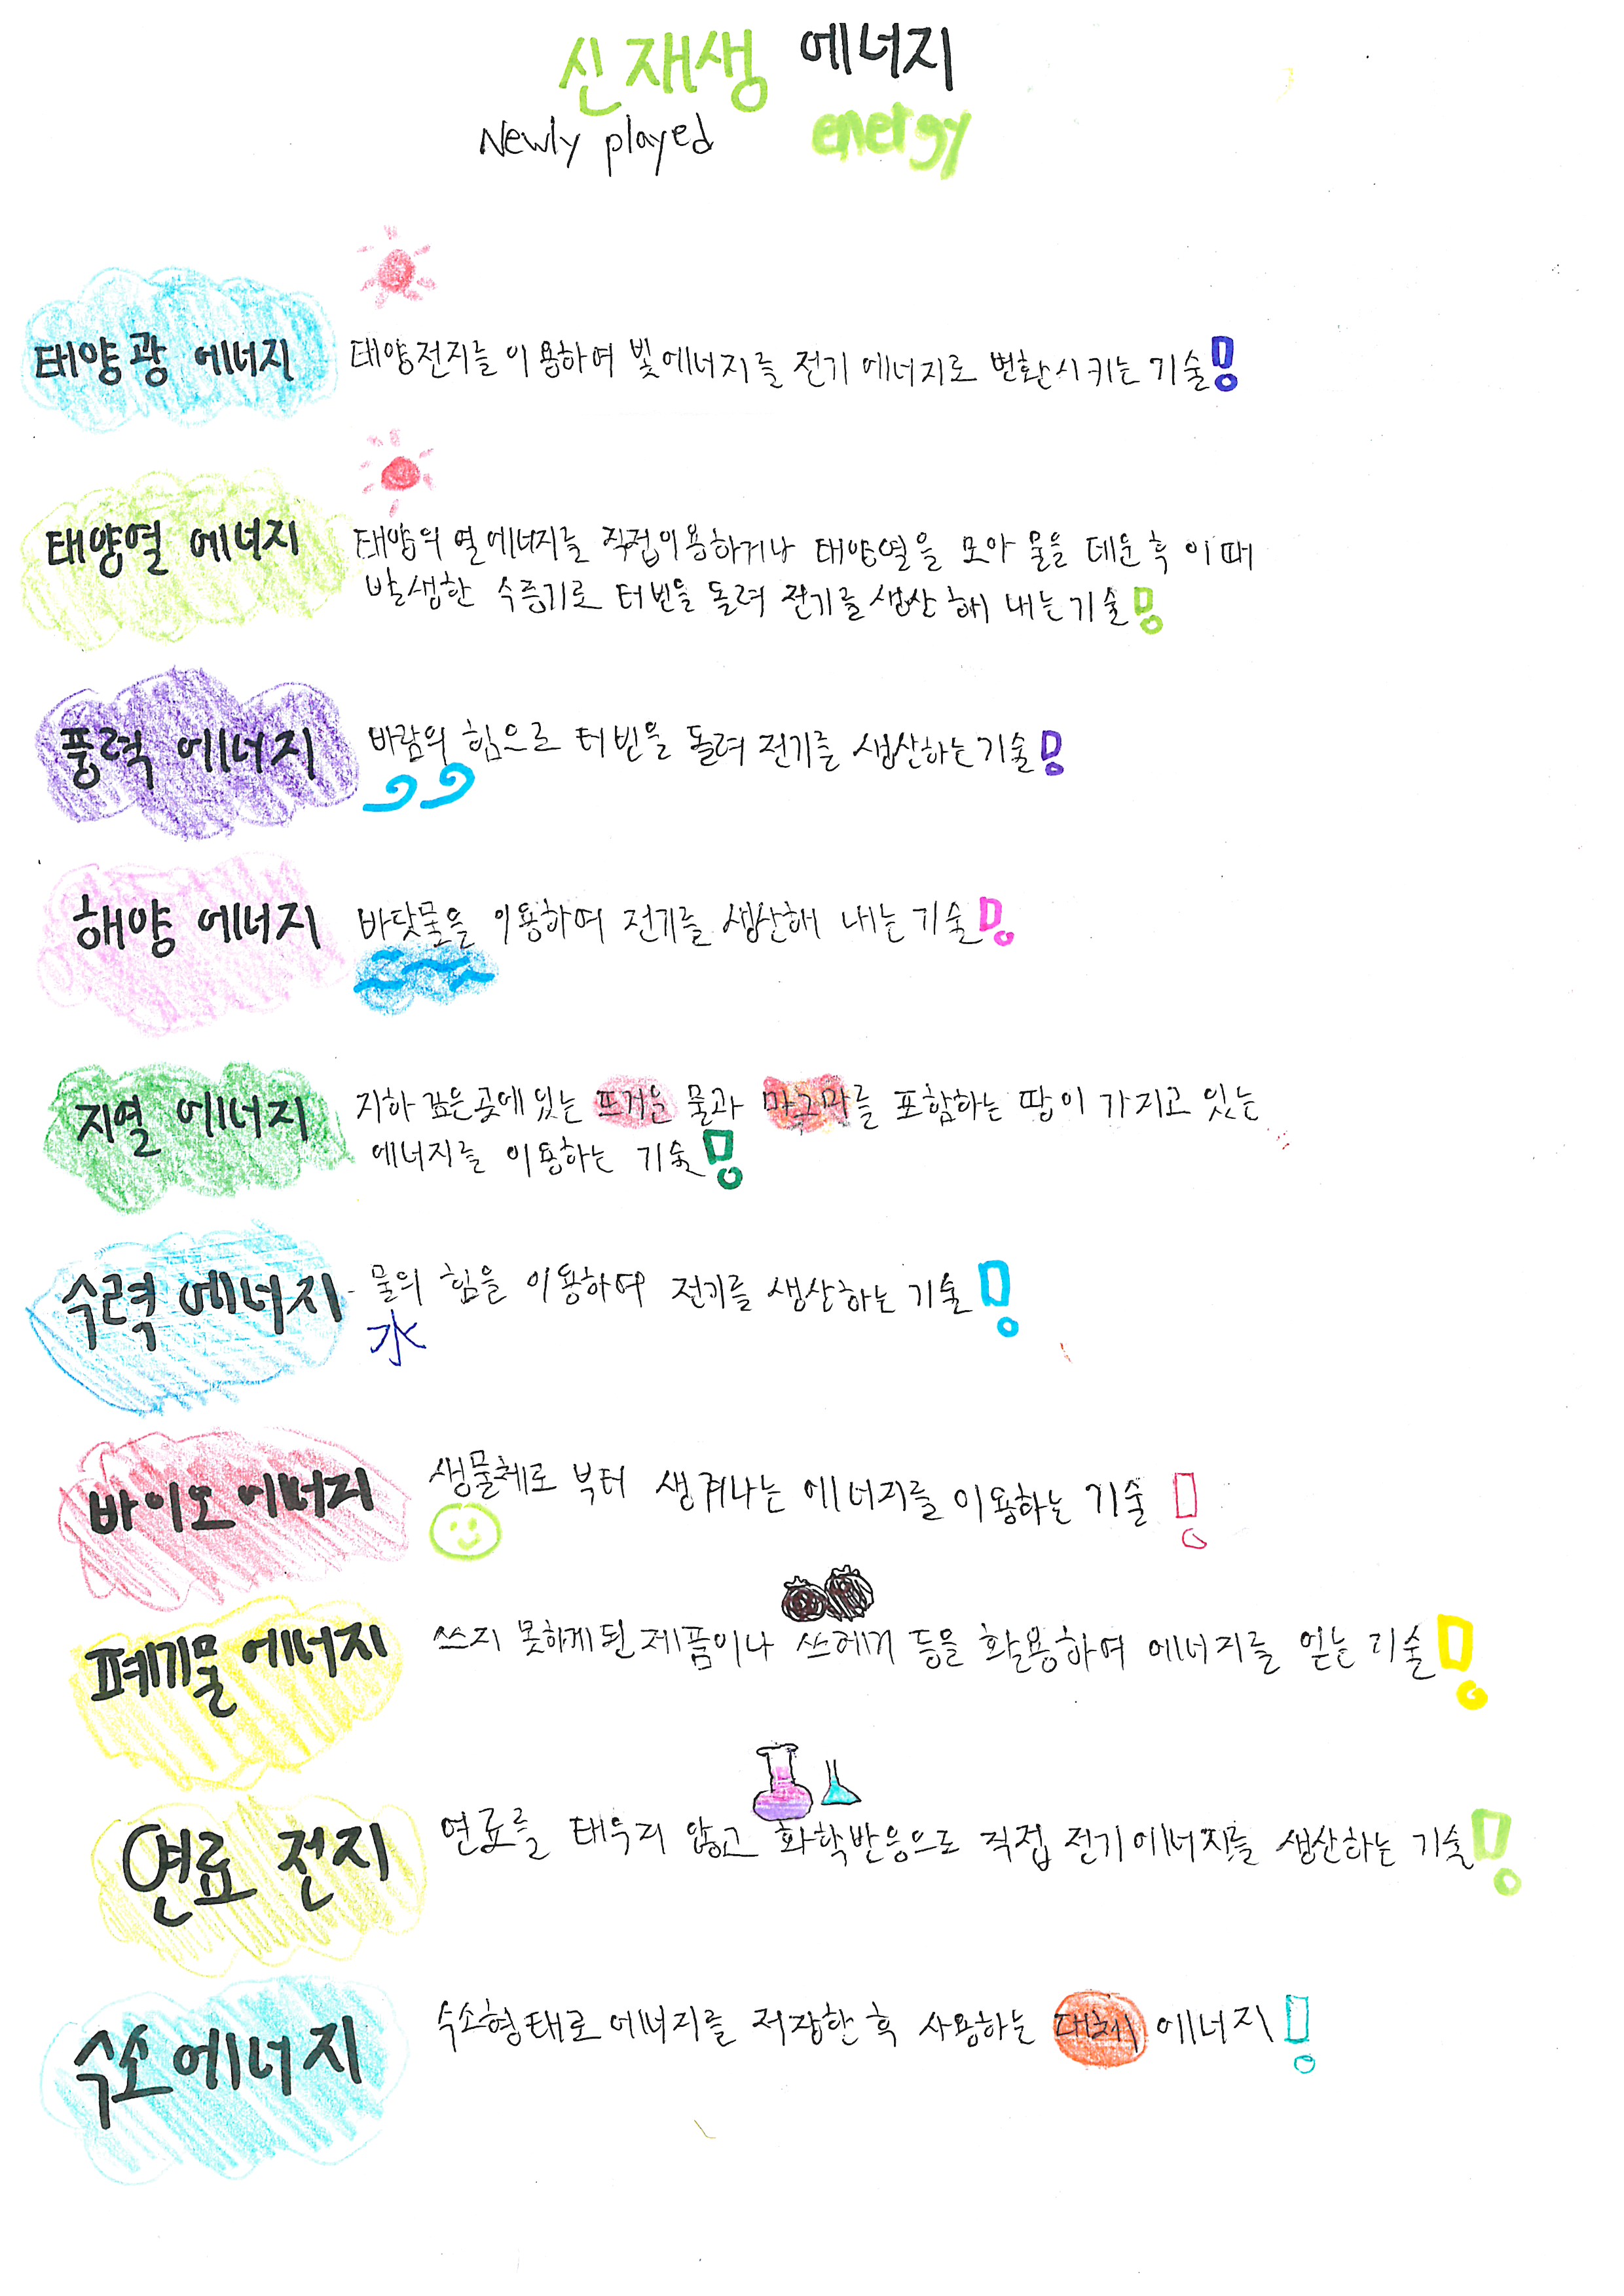 신재생 에너지
Newly played energy
태양광 에너지 태양전지를 이용하여 빛에너지를 전기 에너지로 변환시키는 기술!
태양열 에너지 태양의 열에너지를 직접이용하거나 태양열을 모아 물을 데운 후 이때
발생한 수증기로 터빈을 돌려 전기를 생산해 내는 기술!
풍력 에너지 바람의 힘으로 터빈을 돌려 전기를 생산하는 기술!
해양 에너지 바닷물을 이용하여 전기를 생산해 내는 기술!
지열 에너지 지하 깊은곳에 있는 뜨거운 물과 마그마를 포함하는 땅이 가지고 있는
에너지를 이용하는 기술!
수력 에너지 물의 힘을 이용하여 전기를 생산하는 기술!
水
바이오 에너지 생물체로 부터 생겨나는 에너지를 이용하는 기술!
폐기물 에너지 쓰지 못하게된 제품이나 쓰레기 등을 활용하여 에너지를 얻는 기술!
연료 전지 연료를 태우지 않고 화학반응으로 직접 전기에너지를 생산하는 기술!
수소 에너지 수소형태로 에너지를 저장한 후 사용하는 대체 에너지!